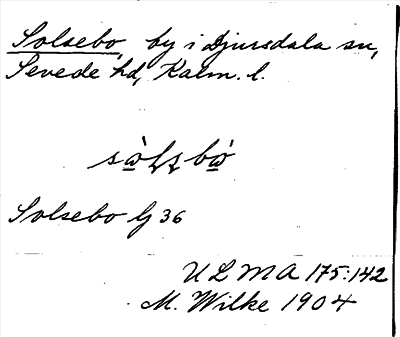 Solsebo, by i Djursdala sn,
Sevede hd, Kalm. l.
Solsebo lj 36
ULMA 175:142
M. Wilke 1904